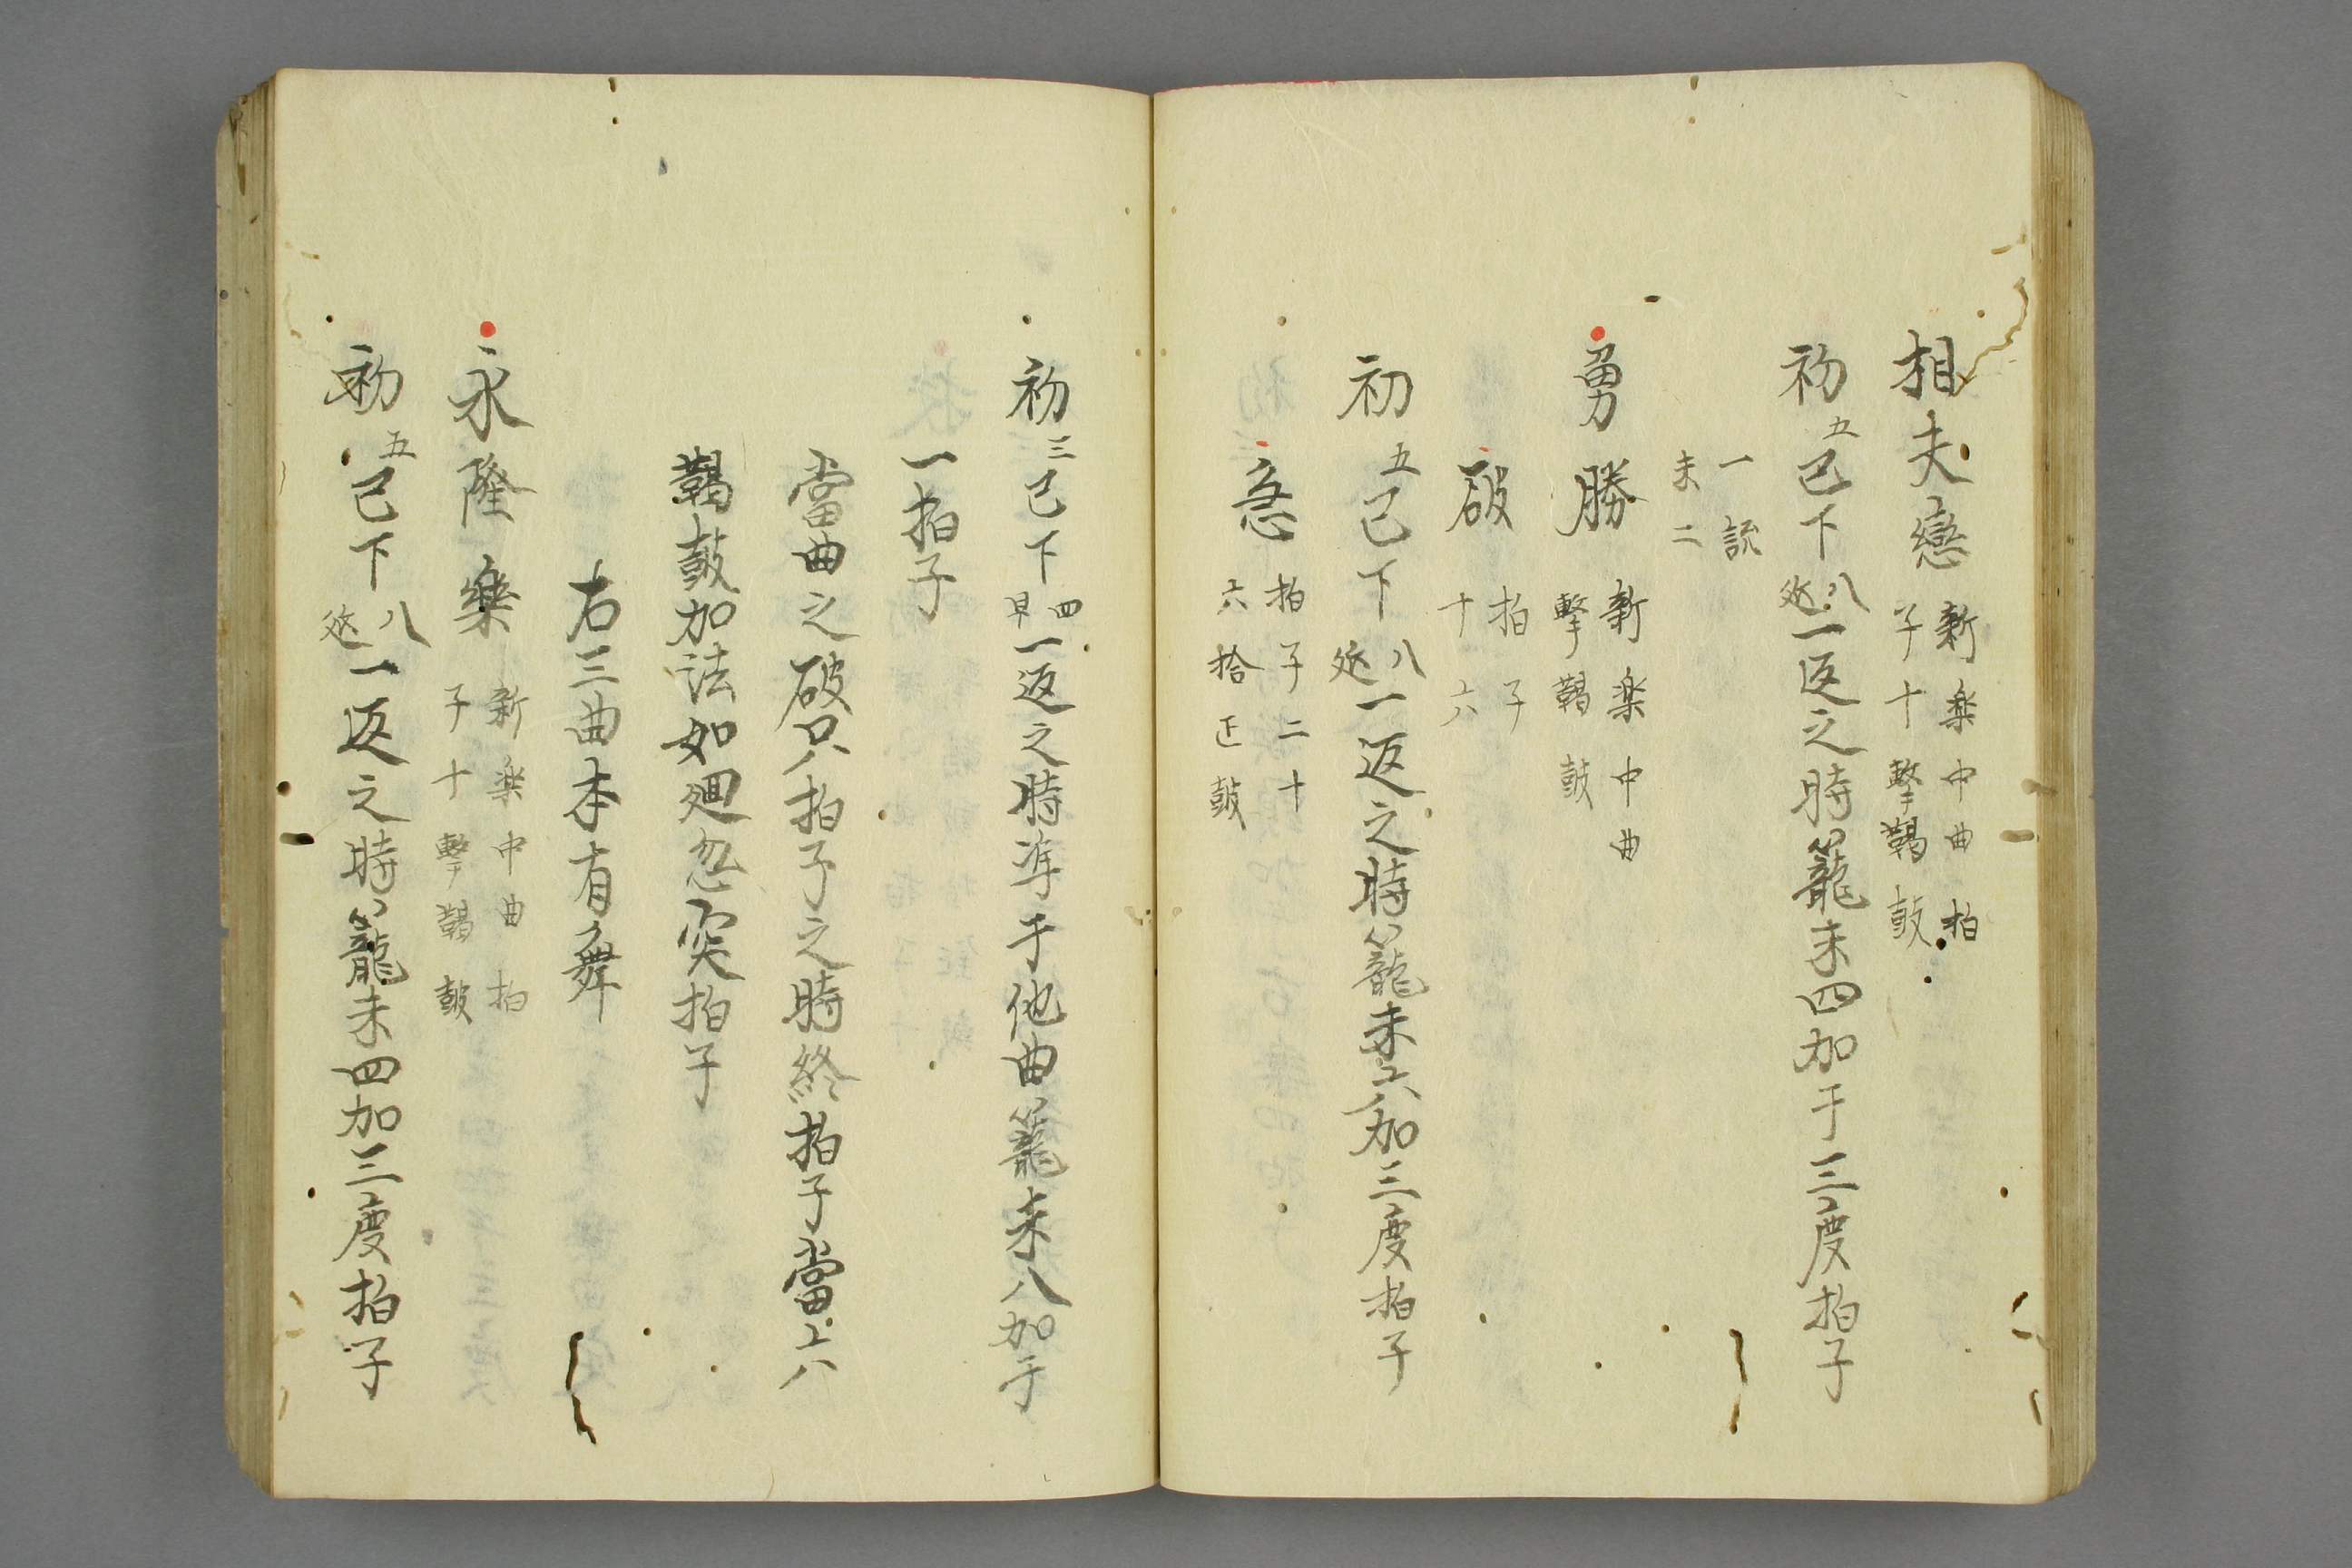 相夫戀 新楽中曲拍
子十撃鞨鼓
初五已下八〻一返之時籠未四加于三度拍子
一説
未二
勇勝 新楽中曲
撃鞨鼓
破 拍子
十六
初五已下八〻一返之時籠未六加三度拍子
急 拍子二十
六拾正鼓
初三已下四早一返之時准于他曲籠未八加于
一拍子
當曲之破只拍子之時終拍子當六
鞨鼓加法如廻忽突拍子
右三曲本有舞
永隆樂 新楽中曲拍
子十撃鞨鼓
初五已下八〻一返之時籠未四加三度拍子